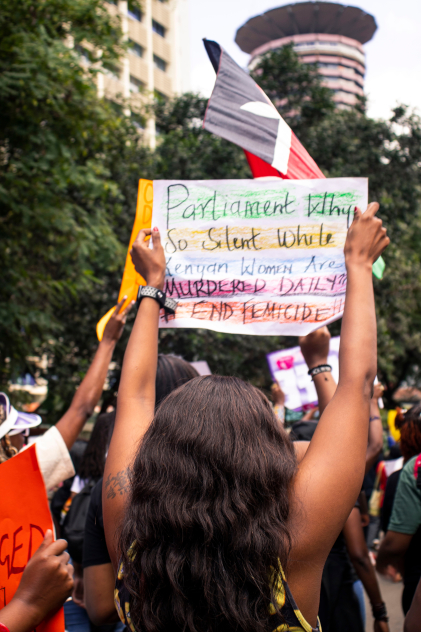 Parliament Why
So Silent While
Kenyan Women Are
MURDERED DAILY??
# END FEMICIDE!!
GED